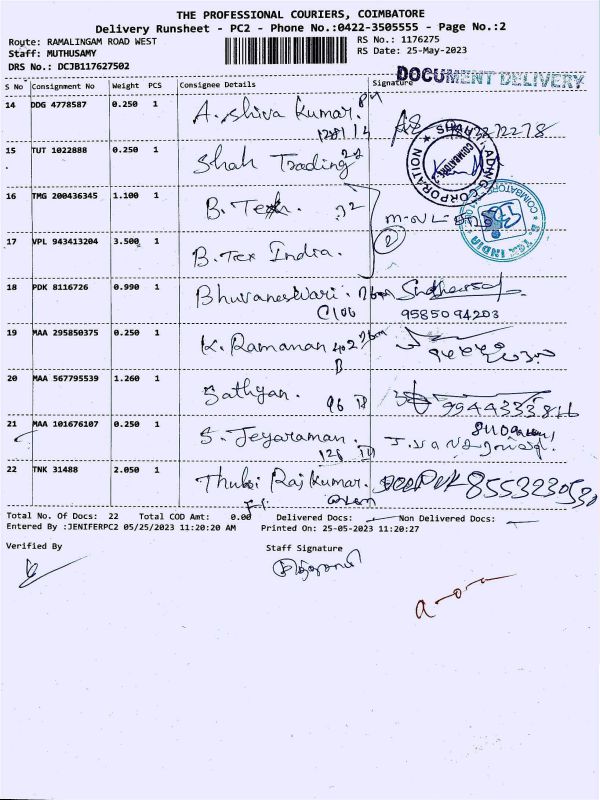 THE PROFESSIONAL COURIERS, COIMBATORE
Delivery Runsheet - PC2 - Phone No.:0422-3505555 - Page No.:2
Route: RAMALINGAM ROAD WEST
RS No.: 1176275
Staff: MUTHUSAMY
RS Date: 25-May-2023
DRS No.: DCJB117627502
DOCUMENT DELIVERY
S No Consignment No Weight PCS Consignee Details Signature
14 DDG 4778587 0.250 1 A. Shiva Kumar.
15 TUT 1022888 0.250 1 Shah Trading 22
16 TMG 200436345 1.100 1 B. Tex. 32
17 VPL 943413204 3.500 1 B. Tex India. 2
18 PDK 8116726 0.990 1 Bhuvaneswari.
C100 9585094203
19 MAA 295850375 0.250 1 K. Ramanan 402
B
20 MAA 567795539 1.260 1 Sathyan.
96
21 MAA 101676107 0.250 1 S. Jeyaraman.
128
22 TNK 31488 2.050 1 Thulsi Raj Kumar.
Total No. Of Docs: 22 Total COD Amt: 0.00 Delivered Docs: Non Delivered Docs:
Entered By :JENIFERPC2 05/25/2023 11:20:20 AM Printed On: 25-05-2023 11:20:27
Verified By
Staff Signature